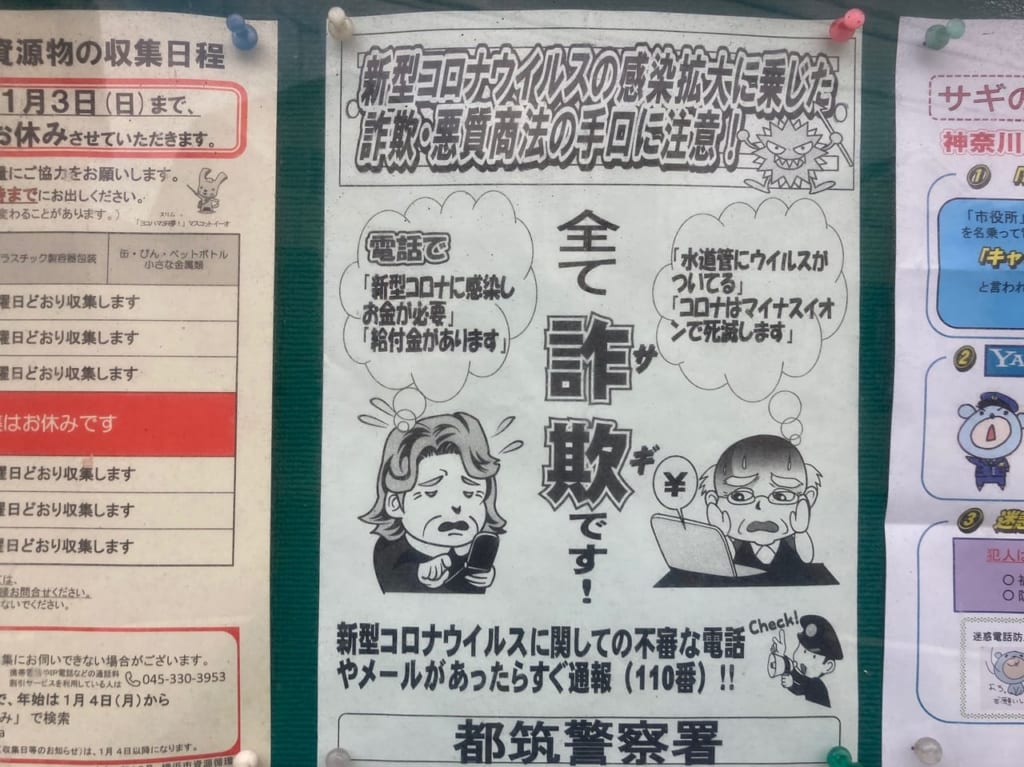 資源物の収集日程
1月3日(日)まで、
お休みさせていただきます。
にご協力をお願いします。
までにお出しください。
変わることがあります。)
スリム
「ヨコハマ3R夢!」マスコットイーオ
プラスチック製容器包装
缶・びん・ペットボトル
小さな金属類
曜日どおり収集します
曜日どおり収集します
曜日どおり収集します
はお休みです
曜日どおり収集します
曜日どおり収集します
曜日どおり収集します
お問合せください。
ないでください。
集にお伺いできない場合がございます。
携帯電話やIP電話などの通話料
割引サービスを利用している人は
045-330-3953
で、年始は1月4日(月)から
み」で検索
収集日等のお知らせ)は、1月4日以降になります。
横浜市資源循環
新型コロナウイルスの感染拡大に乗じた
詐欺・悪質商法の手口に注意!!
電話で
「新型コロナに感染し
お金が必要」
「給付金があります」
全て詐欺です!
サギ
「水道管にウイルスが
ついてる」
「コロナはマイナスイオ
ンで死滅します」
¥
新型コロナウイルスに関しての不審な電話
やメールがあったらすぐ通報(110番)!!
Check!
都筑警察署
サギの
神奈川
①
「市役所」
を名乗って
「キャ
と言われ
②
YA
③
迷惑
犯人は
迷惑電話防